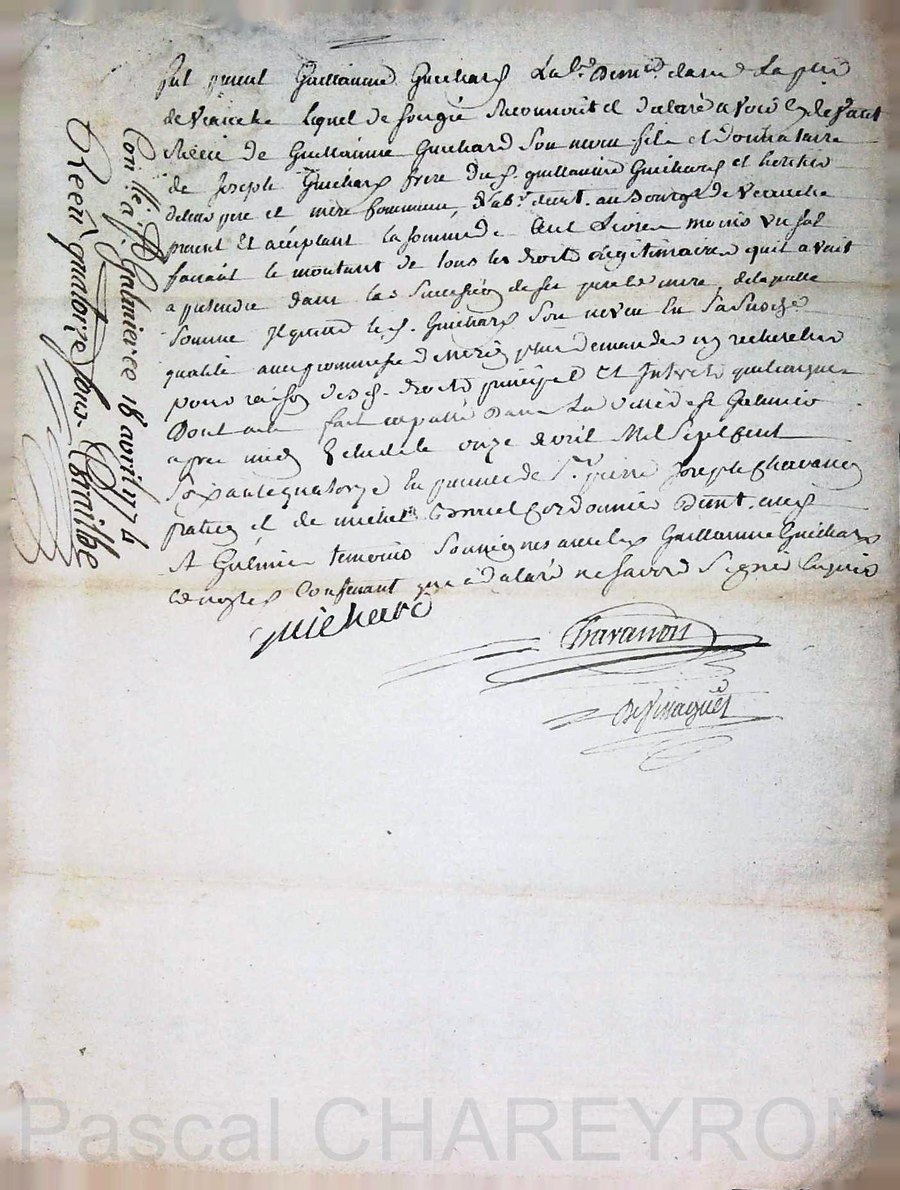 fut présent Guillaume Guichard Lab.r dem.t dans La p.sse
de Veauche lequel de son gré reconnoit et déclaré avoir cy devant
Reçu de Guillaume Guichard Son neveu fils et donnataire
de Joseph Guichard frere du S. guillaume Guichard et heritier
de leur pere et mere commun, Lab.r dem.t au Bourg de Veauche
present Et acceptant la somme de Cent Livres moins un sol
faisant le montant de tous les droits Legitimaires quil avoit
a pretendre dans les Succession de ses pere et mere, de laquelle
Somme Il quitte led. S. Guichard Son neveu En Sa Susd.
qualité avec promesse de n'en Rien plus demander ny rechercher
pour raison des d. droits principal et Interets quelconques
Dont acte fait et passé Dans La ville de S.t Galmier
apres midy Etude le onze Avril Mil Sept Cent
Soixante quatorze En presence de S.r pierre Joseph Chavanon
praticien et de michel cordonnier dem.t
St Galmier temoins Soussignes avec led. Guillaume Guichard
non led. Confessant qui a déclaré ne savoir Signer Enquis
guichard
Chavanon
Devinaguet
Con.llé a S.t Galmier ce 18 avril 1774
Reçu quatorze sous
Pascal CHAREYRON